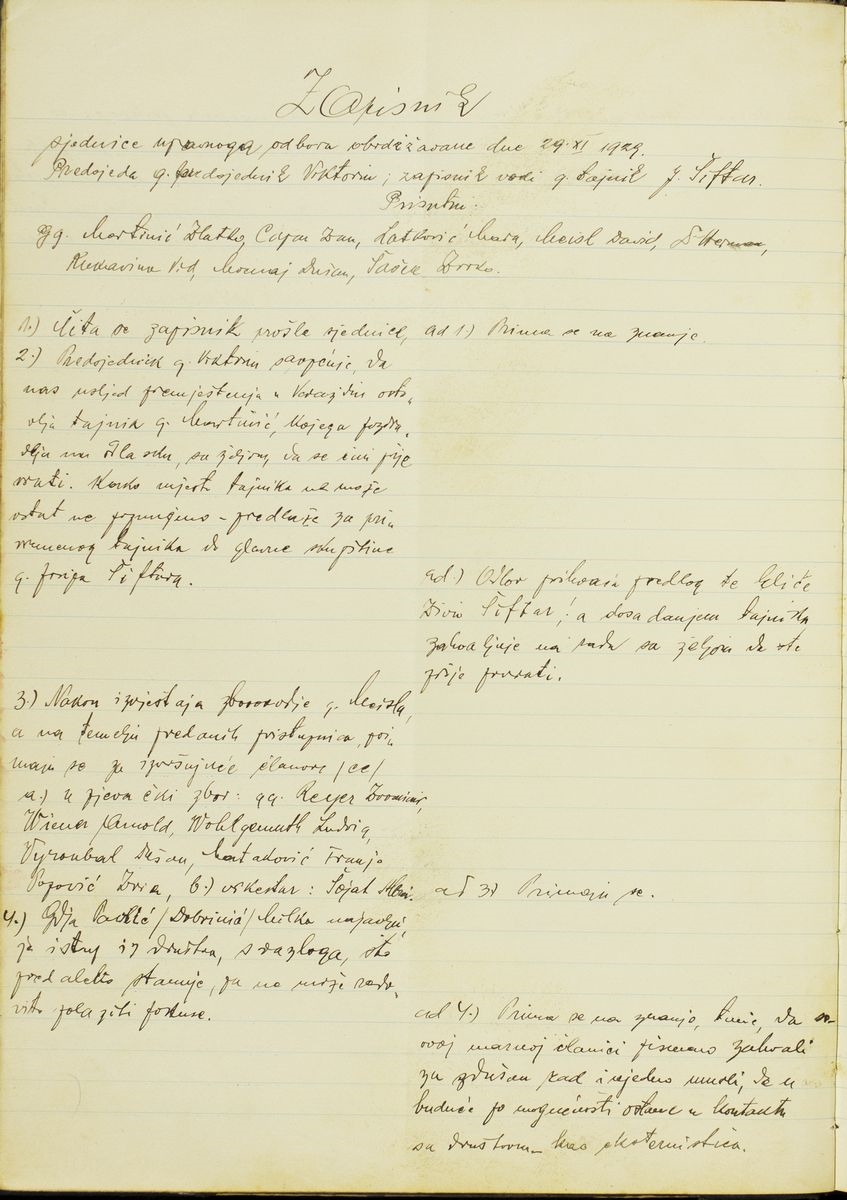 Zapisnik
sjednice upravnoga odbora obdržavane dne 29. XI 1929.
Predsjeda g. predsjednik Viktorin; zapisnik vodi g. tajnik J. Šiftar.
Prisutni:
gg. Martinić Zlatko, Capan Ivan, Latković Mara, Meisl David,
Rukavina Vid, Dušan, Šaček Zvonko.
1.) Čita se zapisnik prošle sjednice,
2.) Predsjednik g. Viktorin saopćuje, da
nas usljed premještenja u Varaždin osta-
vlja tajnik g. Martinić, kojega pozdra-
vlja sa željom, da se čim prije
vrati. Kako mjesto tajnika ne može
ostat ne popunjeno – predlaže za pri-
vremenog tajnika do glavne skupštine
g. Josipa Šiftara.
3.) Nakon izvještaja zborovodje g. Meisla,
a na temelju predanih pristupnica, pri-
maju se za izvršujuće članove /ce/
a.) u pjevački zbor: gg. Reyer Zvonimir,
Wiener Arnold, Wohlgemuth Ludvig,
Vyroubal Dušan, Mataković Franjo
Popović, b.) orkestar: Šojat
4.) Gdja Pavlić /Dobrinić/ Milka najavlju-
je istup iz društva, s razloga, što
predaleko stanuje, pa ne može redo-
vito polaziti pokuse.
ad 1.) Prima se na znanje.
ad.) Odbor prihvaća predlog te kliče
Živio Šiftar! a dosadanjem tajniku
zahvaljuje na radu sa željom da što
prije povrati.
ad 3) Primaju se.
ad 4.) Prima se na znanje, time, da se
ovoj marnoj članici pismeno zahvali
za zdušan rad i ujedno umoli, da u
buduće po mogućnosti ostane u kontaktu
sa društvom – kao eksternistica.